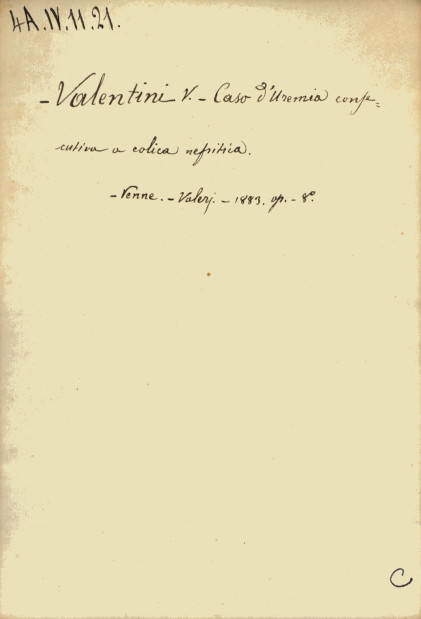 4A.IV.11.21.
- Valentini V. - Caso d'Uremia conse=
cutiva a colica nefritica.
- Penne. - Valerj. - 1883. op. - 8°.
C